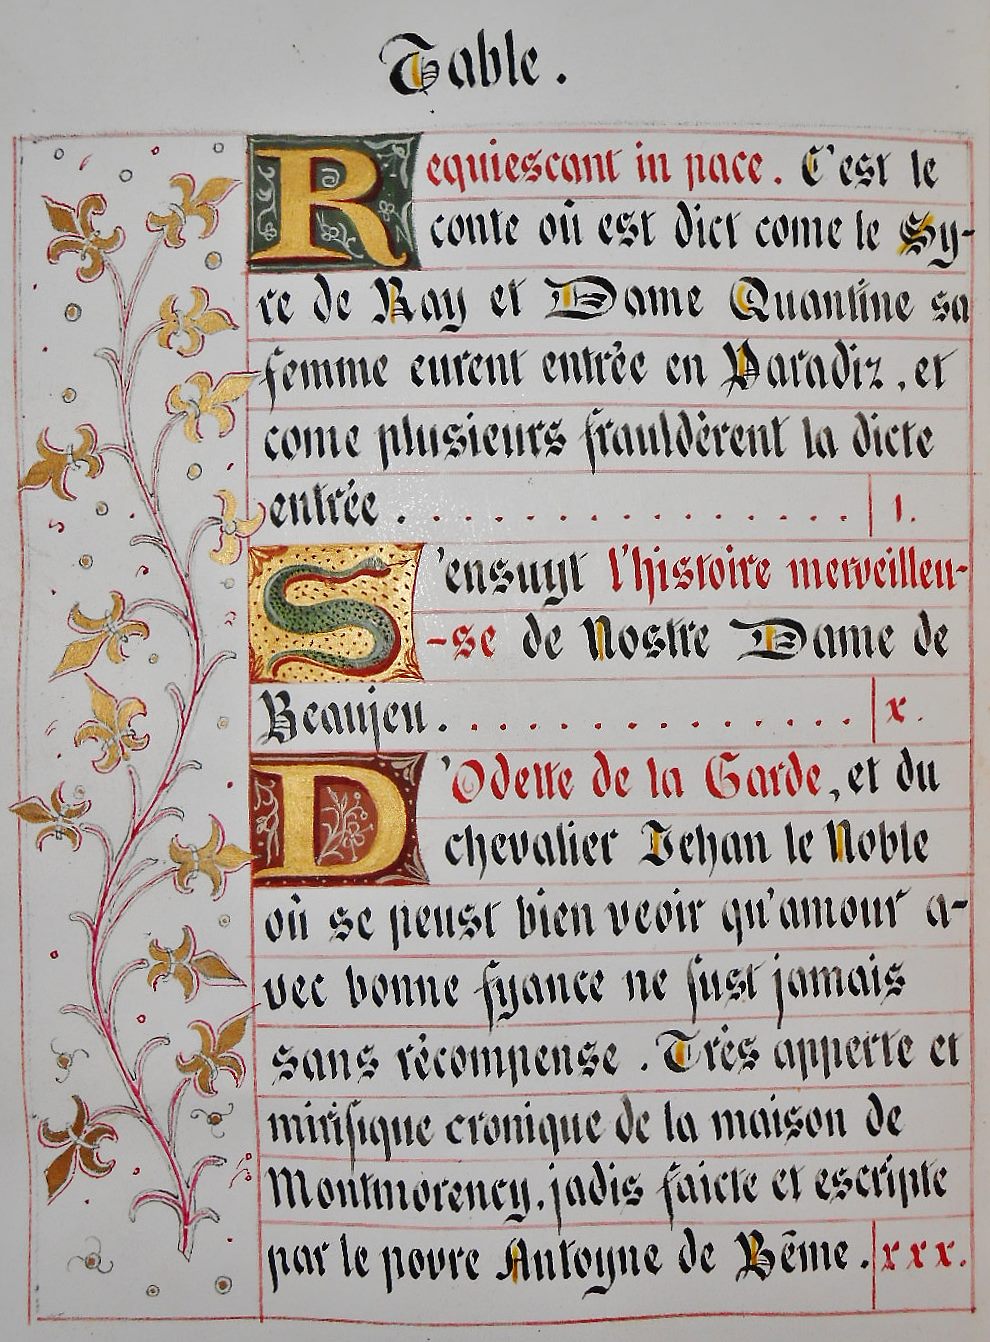 Table.
Requiescant in pace. C'est le
conte où est dict come le Sy-
re de Ray et Dame Quantine sa
femme eurent entrée en Paradiz, et
come plusieurs frauldèrent la dicte
entrée . . . . . . . . . . . . . . . . . 1.
S'ensuyt l'histoire merveilleu-
-se de Nostre Dame de
Beaujeu . . . . . . . . . . . . . . . x.
D'Odette de la Garde, et du
chevalier Jehan le Noble
où se peust bien veoir qu'amour a-
vec bonne fyance ne fust jamais
sans récompense. Très apperte et
mirifique cronique de la maison de
Montmorency, jadis faicte et escripte
par le povre Antoyne de Bême. xxx.